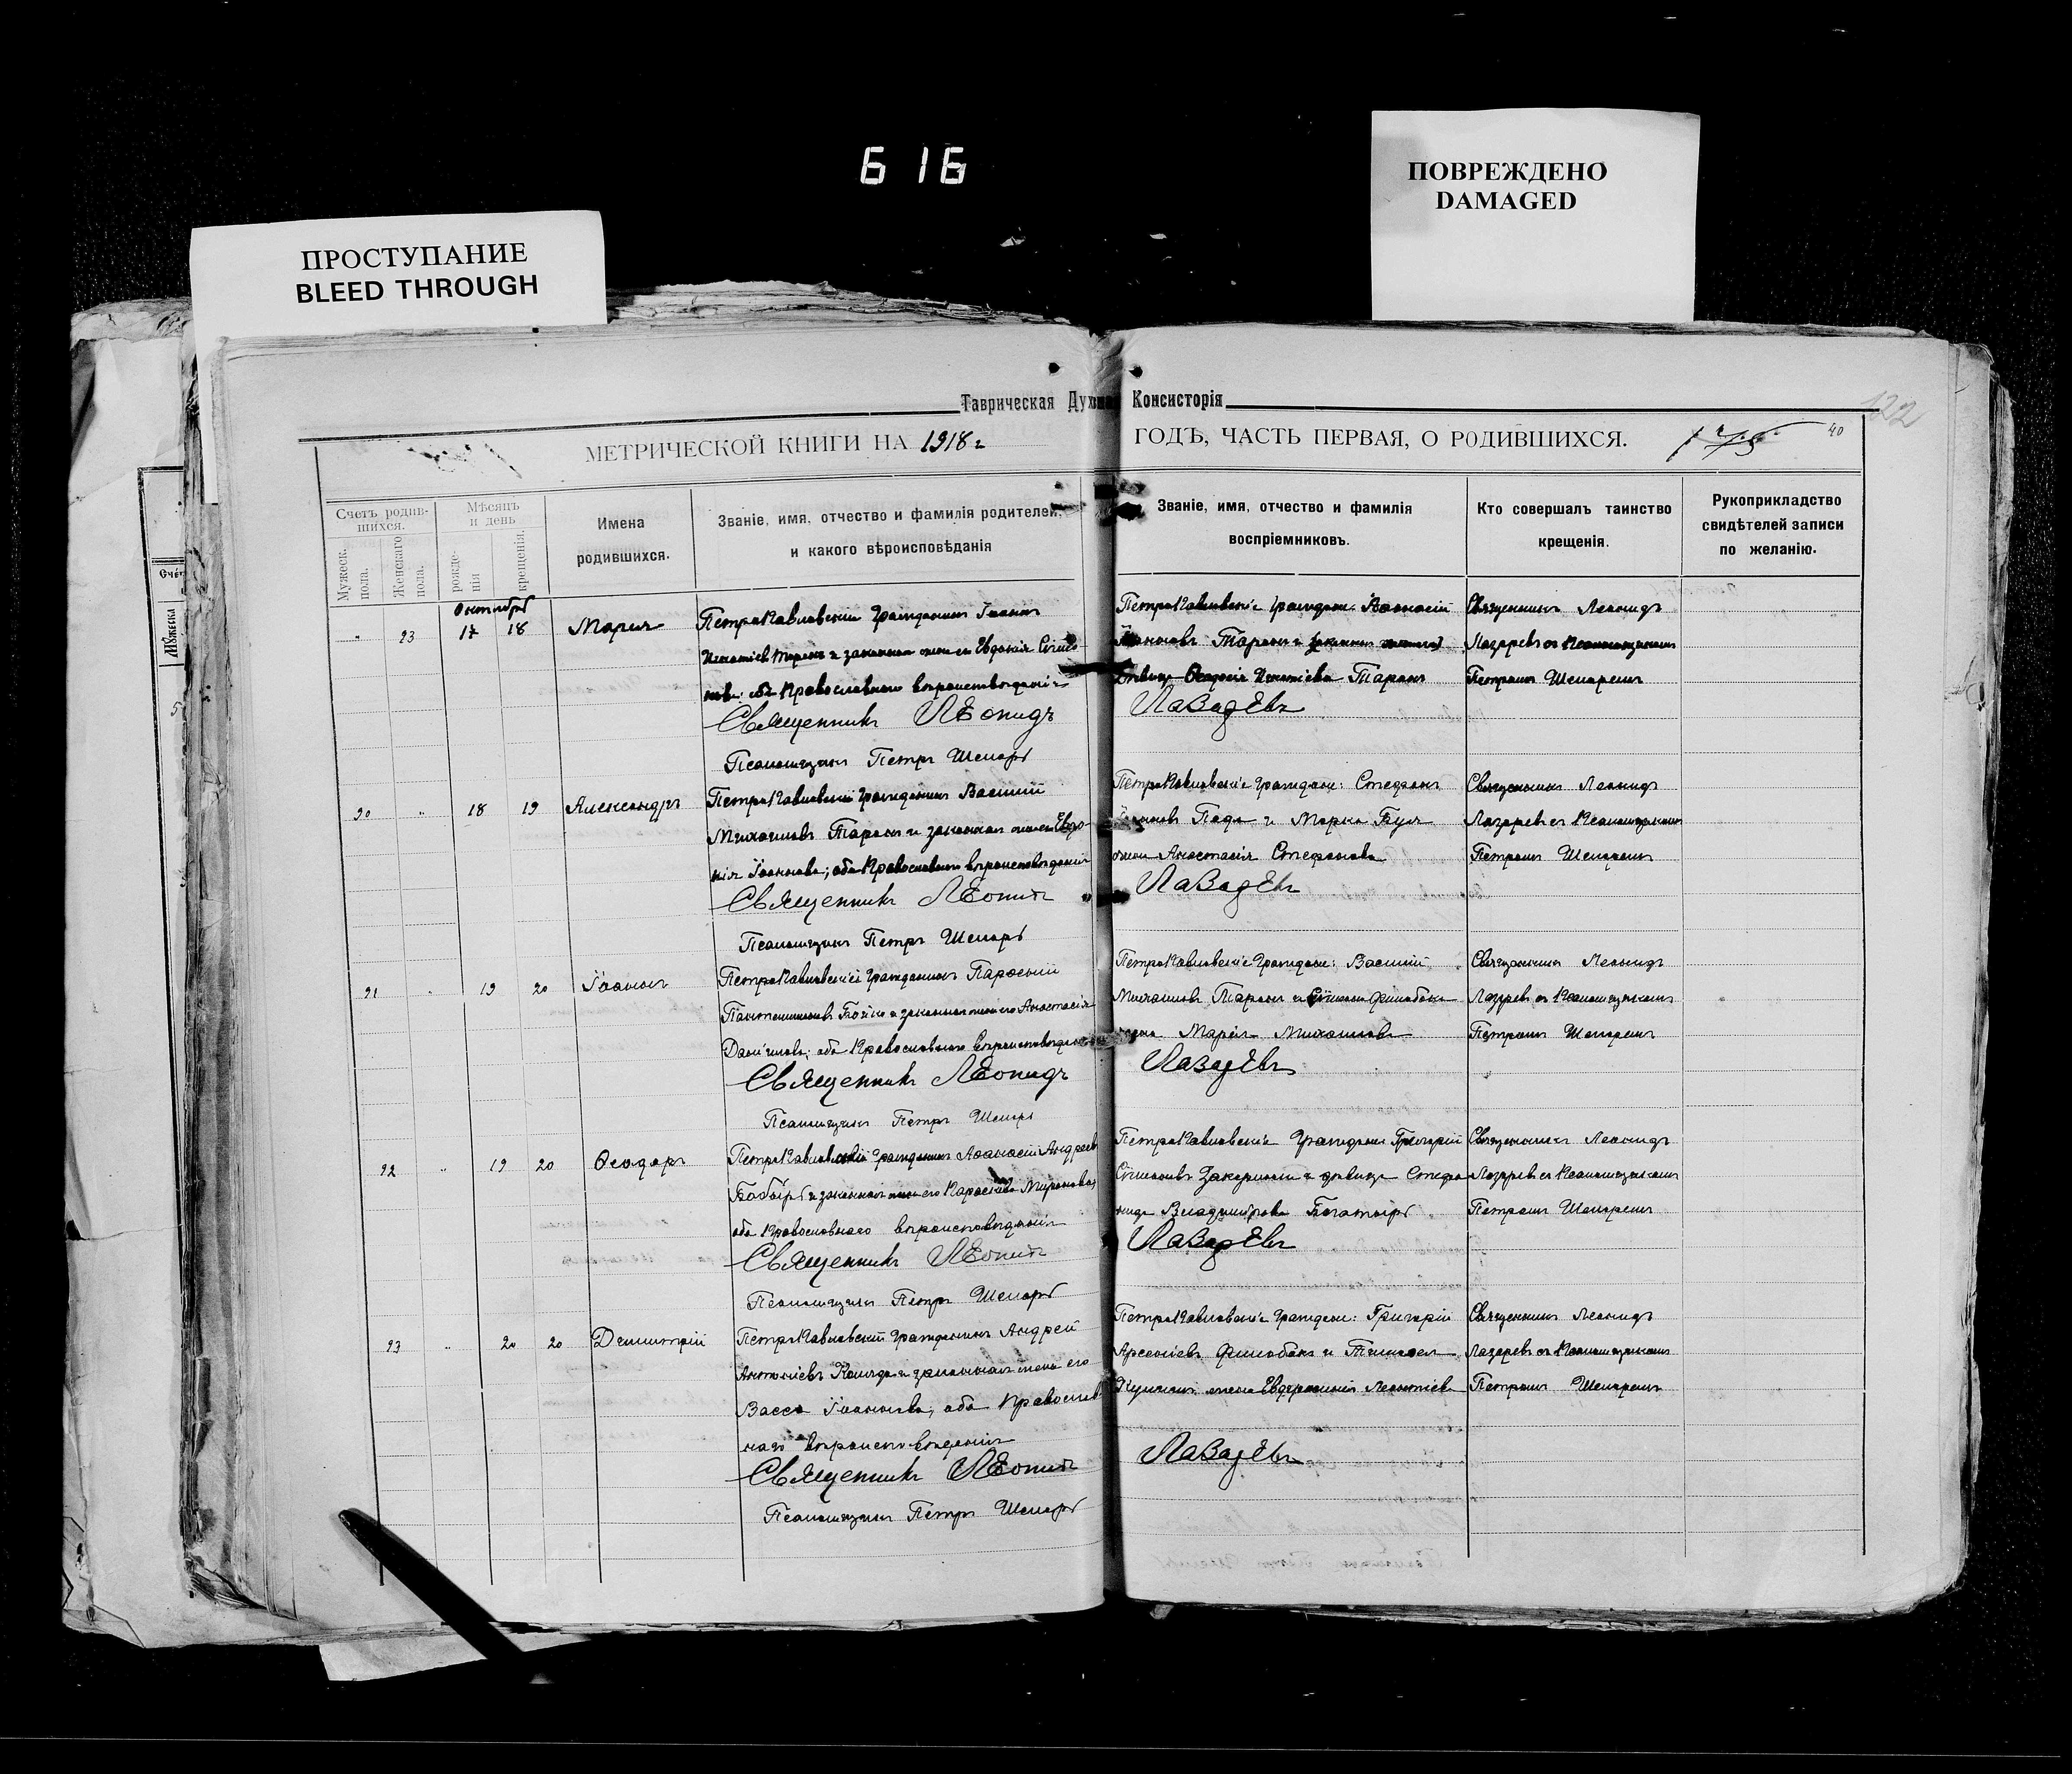 616
ПОВРЕЖДЕНО
DAMAGED
ПРОСТУПАНИЕ
BLEED THROUGH
Таврическая Духовная Консисторія
122
МЕТРИЧЕСКОЙ КНИГИ НА 1918 г
ГОДЪ, ЧАСТЬ ПЕРВАЯ, О РОДИВШИХСЯ.
40
Счетъ родив-
шихся.
Мужеск.
пола.
Женскаго
пола.
Мѣсяцъ
и день
рожде-
нія
крещенія.
Имена
родившихся.
Званіе, имя, отчество и фамилія родителей,
и какого вѣроисповѣданія
Званіе, имя, отчество и фамилія
воспріемниковъ.
Кто совершалъ таинство
крещенія.
Рукоприкладство
свидѣтелей записи
по желанію.
Октябрь
" 23 17 18 Марія
Петропавловскій гражданинъ Іоаннъ
Игнатіевъ Таранъ и законная жена его Евдокія
оба Православнаго вѣроисповѣданія
Священникъ Леонидъ
Псаломщикъ Петръ Шепарь
Петропавловскіе граждане: Аѳанасій
Таранъ и
дѣвица Ѳеодосія Игнатіева Таранъ
Лазаревъ
Священникъ Леонидъ
Лазаревъ съ Псаломщикомъ
Петромъ Шепаремъ
90 " 18 19 Александръ
Петропавловскій гражданинъ Василій
Михаиловъ Таранъ и законная жена его Евдо-
кія Іоаннова; оба Православнаго вѣроисповѣданія
Священникъ Леонидъ
Псаломщикъ Петръ Шепарь
Петропавловскіе граждане: Стефанъ
и Марка
жена Анастасія Стефанова
Лазаревъ
Священникъ Леонидъ
Лазаревъ съ Псаломщикомъ
Петромъ Шепаремъ
91 " 19 20 Іоаннъ
Петропавловскій гражданинъ
Пантелимоновъ Бойко и законная жена его Анастасія
Даніилова; оба Православнаго вѣроисповѣданія
Священникъ Леонидъ
Псаломщикъ Петръ Шепарь
Петропавловскіе граждане: Василій
Михаиловъ Таранъ и
жена Марія Михаилова
Лазаревъ
Священникъ Леонидъ
Лазаревъ съ Псаломщикомъ
Петромъ Шепаремъ
92 " 19 20 Ѳеодоръ
Петропавловскій гражданинъ Аѳанасій Андреевъ
и законная жена его Параскева Миронова
оба Православнаго вѣроисповѣданія
Священникъ Леонидъ
Псаломщикъ Петръ Шепарь
Петропавловскіе граждане Григорій
и дѣвица Стефа-
нида Владимірова Богатырь
Лазаревъ
Священникъ Леонидъ
Лазаревъ съ Псаломщикомъ
Петромъ Шепаремъ
93 " 20 20 Димитрій
Петропавловскій гражданинъ Андрей
Антоніевъ и законная жена его
Васса Іоаннова, оба Православ-
наго вѣроисповѣданія
Священникъ Леонидъ
Псаломщикъ Петръ Шепарь
Петропавловскіе граждане: Григорій
Арсеніевъ и
жена Леонтіева
Лазаревъ
Священникъ Леонидъ
Лазаревъ съ Псаломщикомъ
Петромъ Шепаремъ